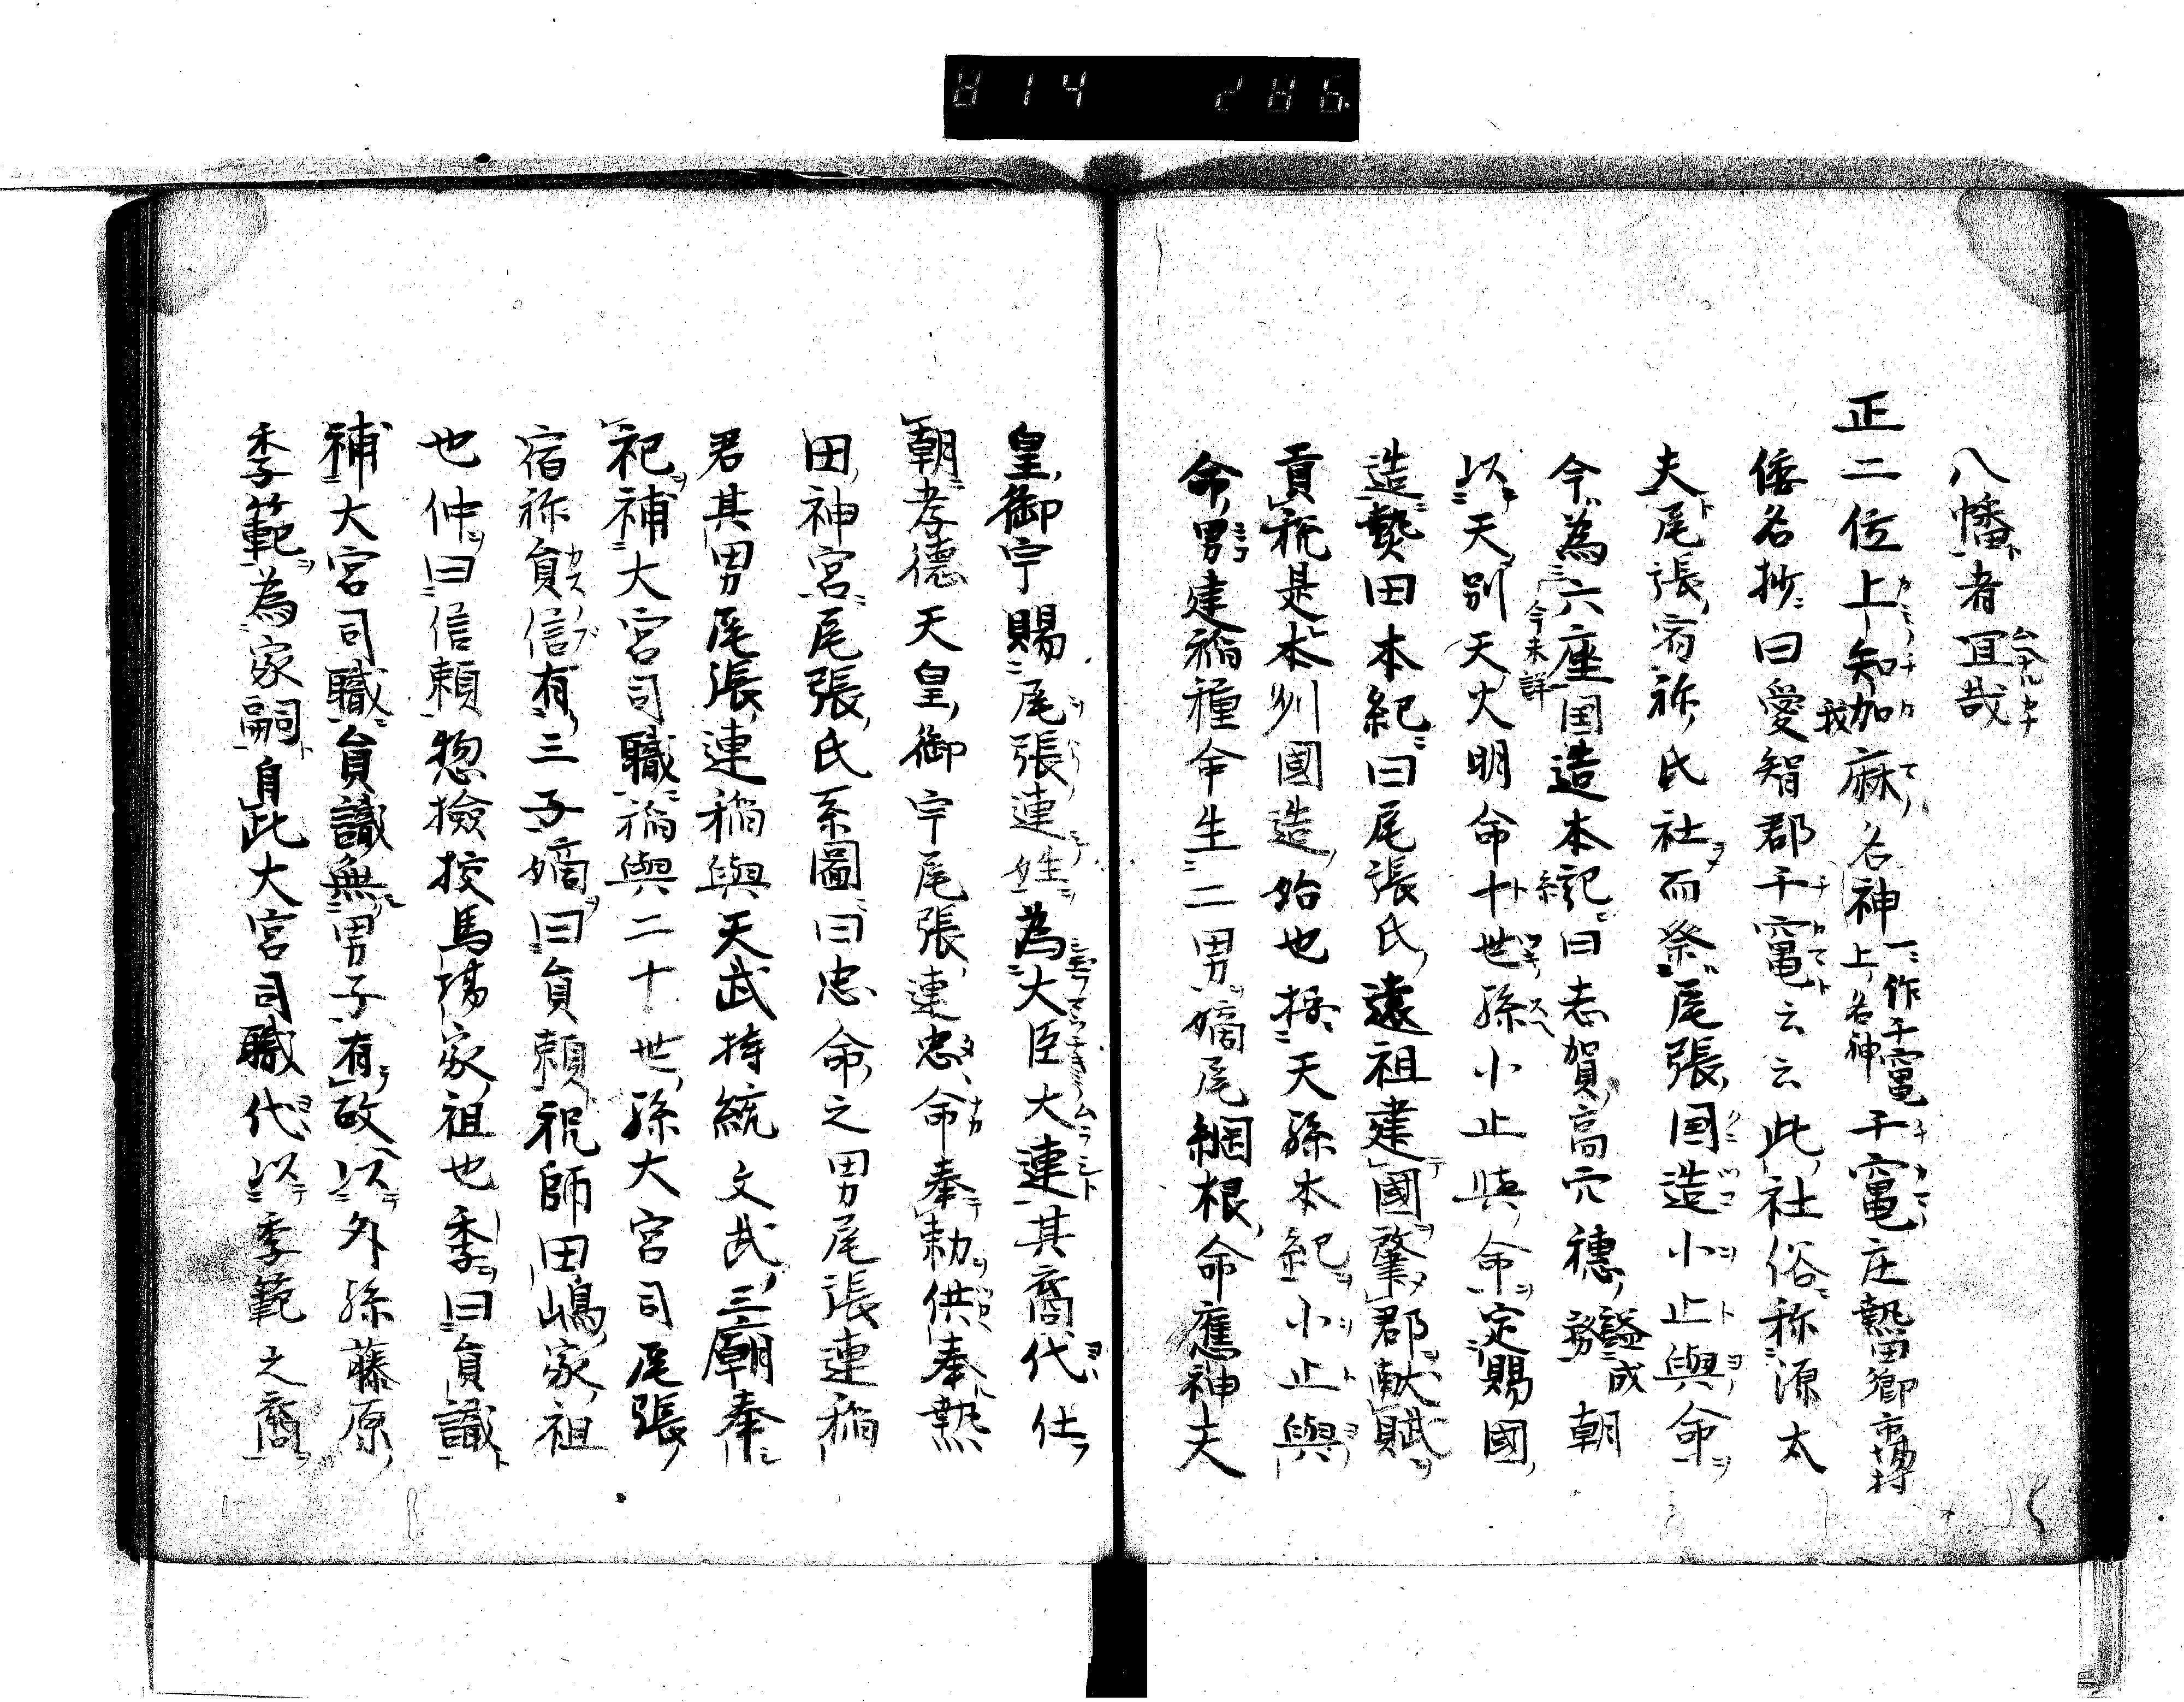 814 286
八幡者宜哉
正二位上知我加麻名神一作千竈上名神千竈庄熱田郷市塲村
倭名抄曰愛智郡千竈云云此社俗称源太
夫尾張宿祢氏社而祭尾張国造小止與命
今為六座今未詳国造本紀曰志賀高穴穂謚成務朝
以天別天火明命十世孫小止與命定賜國
造熱田本紀曰尾張氏遠祖建國肇郡献賦
貢税是本州國造始也按天孫本紀小止與
命男建稲種命生二男嫡尾綱根命應神天
皇御宇賜尾張連姓為大臣大連其裔代仕
朝孝徳天皇御宇尾張連忠命奉勅供奉熱
田神宮尾張氏系圖曰忠命之男尾張連稲
君其男尾張連稲與天武持統文武三廟奉
祀補大宮司職稲與二十世孫大宮司尾張
宿祢員信有三子嫡曰員頼祝師田嶋家祖
也仲曰信頼惣撿挍馬塲家祖也季曰員識
補大宮司職員識無男子有故以外孫藤原
季範為家嗣自此大宮司職代以季範之裔